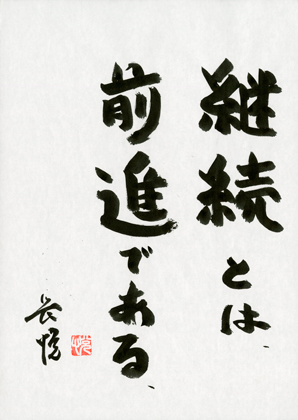 継続とは、
前進である、